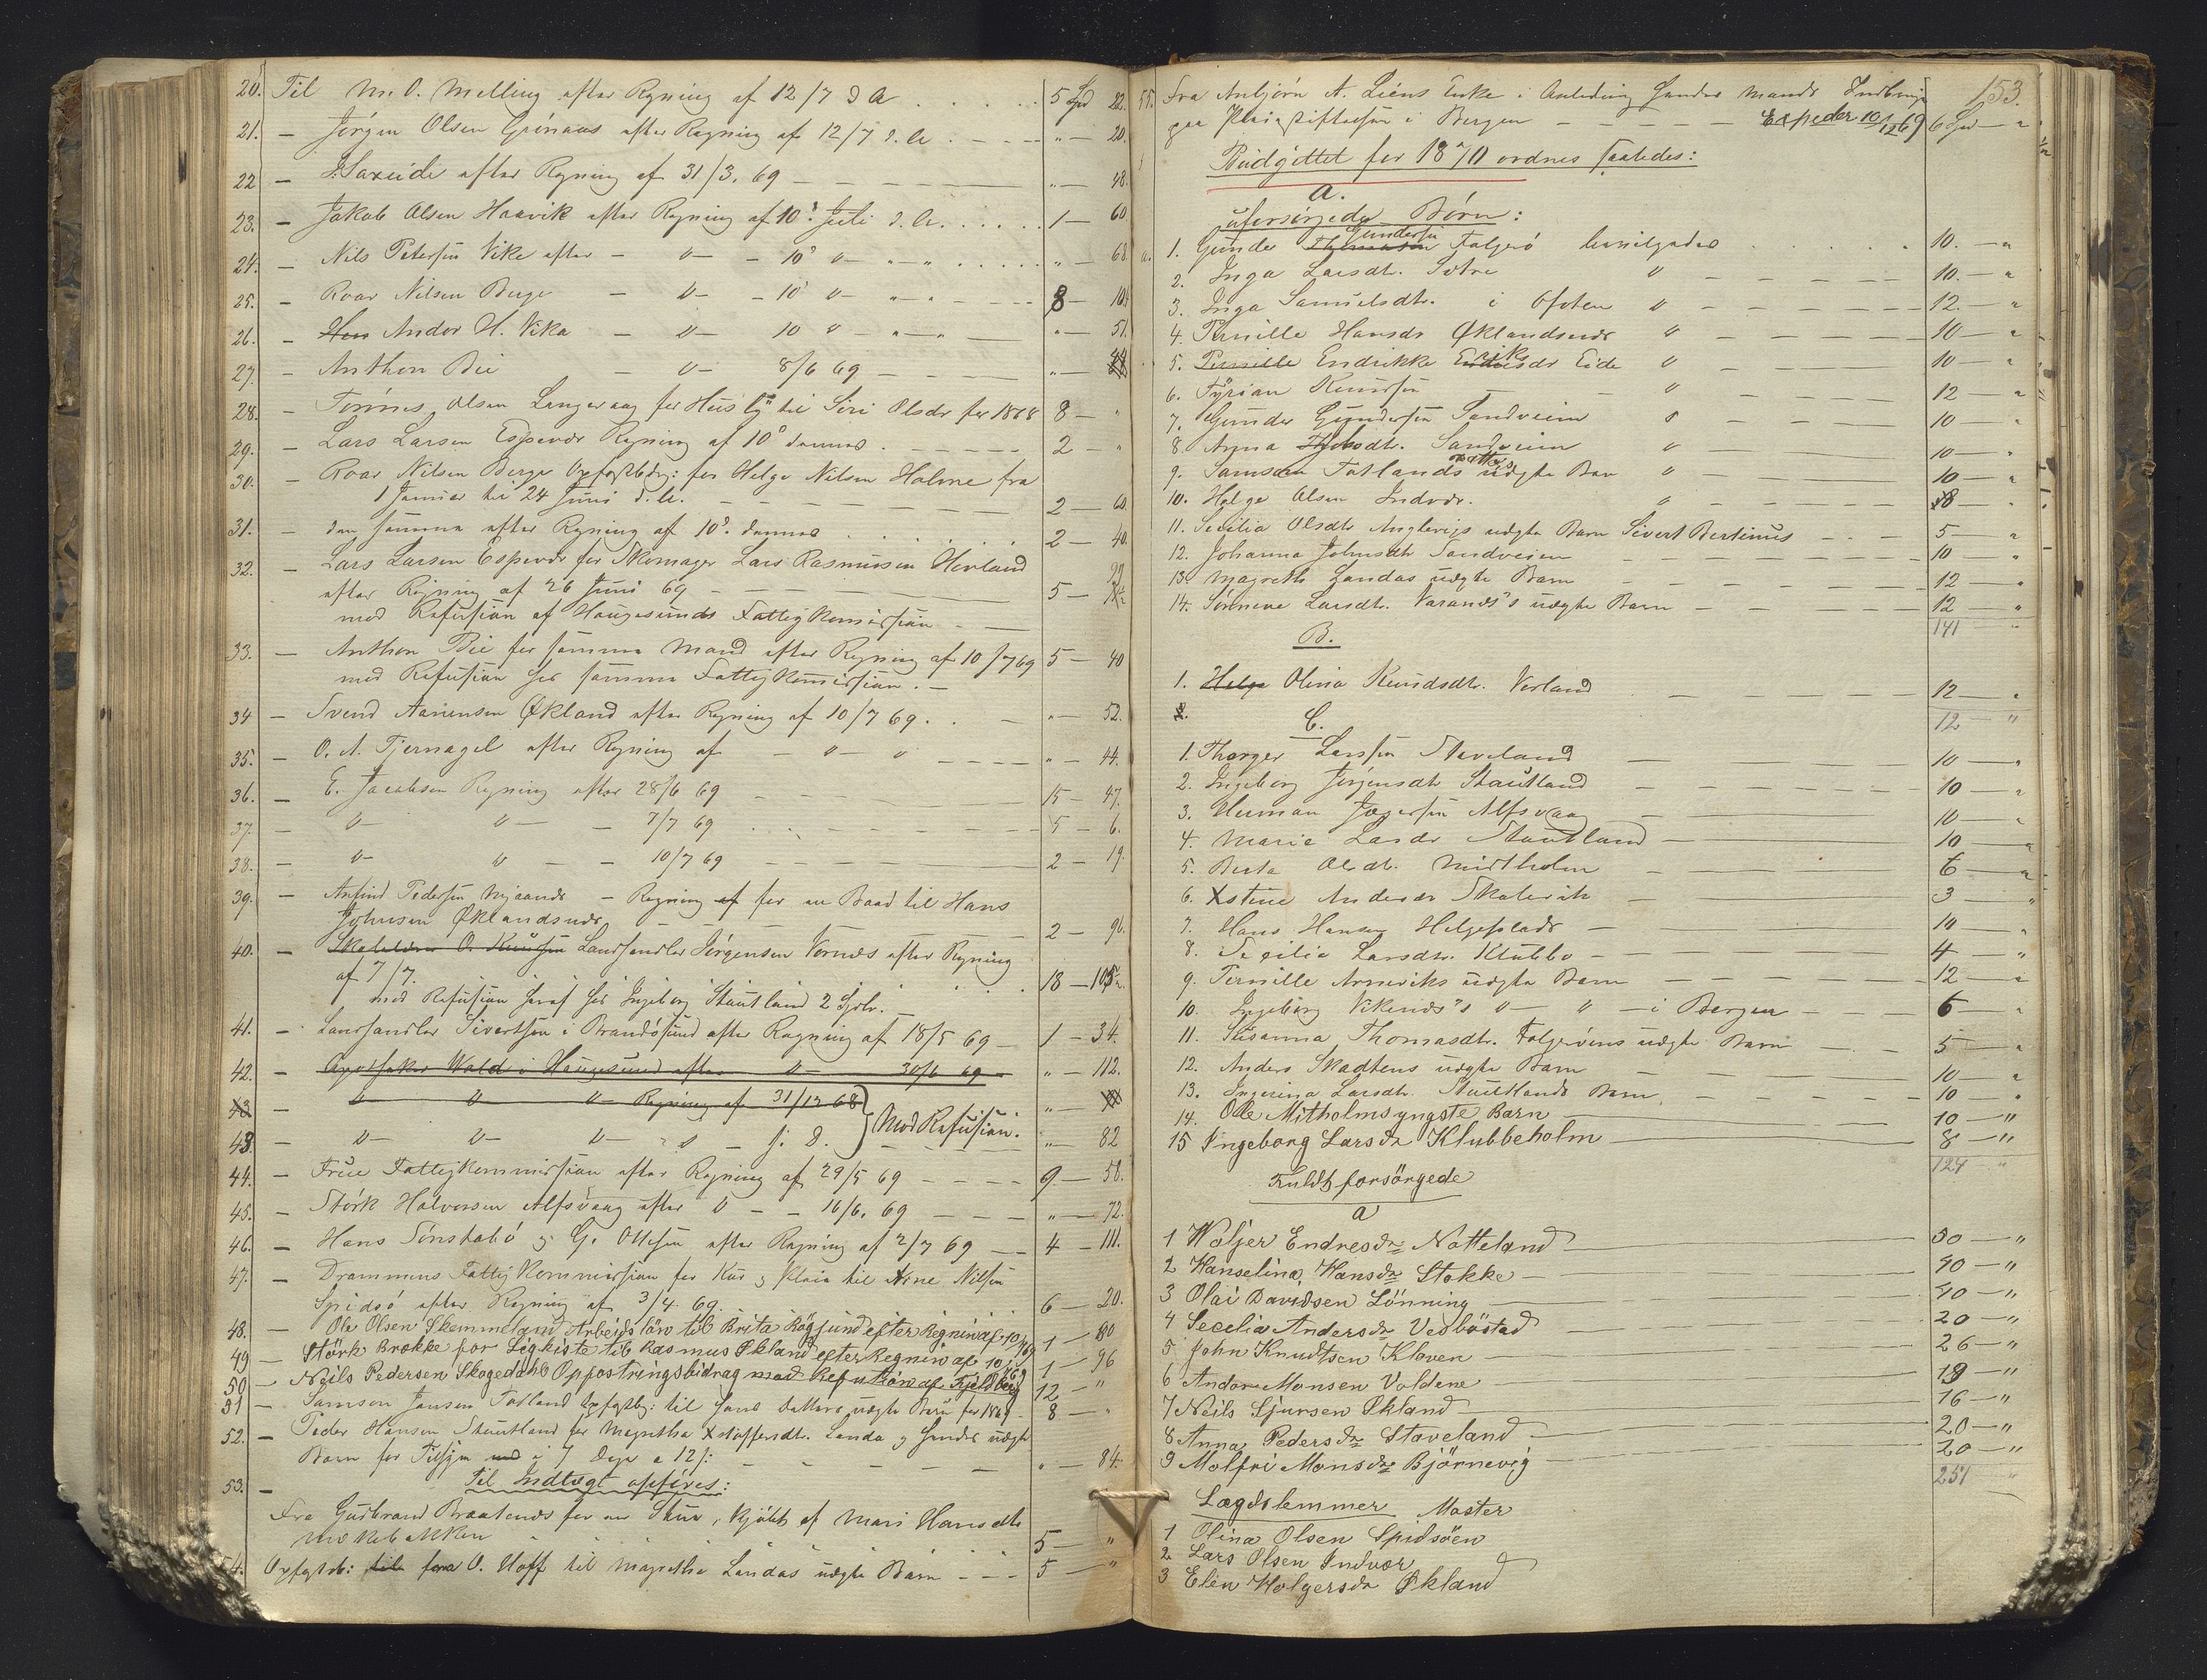 20. Til M. O. Melling efter Regning af 12/7 d A . . . . . 5 Spd 22.
21. — Jørgen Olsen Grønaas efter Regning af 12/7 d. A. . — — — " — 20.
22 — S. Saxeide efter Regning af 31/3. 69 — — — " — 48.
23. — Jakob Olsen Haavik efter Regning af 10d. Juli d. A. . . . . 1 — 60
24. — Nils Petersen Vike efter — " — 10d " — " — " . . . . " — 68.
25. — Roar Nilsen Berge — " — 10d " — " — " — — 8 — 10.
26. — Andor H. Vika — " — 10 " — " — " — 51.
27. — Anthon Bie — " — 8/6 69 — — " — 44
28. — Tønnes Olsen Langevaag for Husly til Siri Olsdr for 1868 8 — "
29. — Lars Larsen Espevær Regning af 10d dennes . — — — 2 — "
30. — Roar Nilsen Berge Opfostbdrg: for Helge Nilsen Holme fra
1 Januar til 24 Juni d. A. — — — 2 — 60.
31. — den samme efter Regning af 10d. dennes . . . . 2 — 40.
32. — Lars Larsen Espevær for Skomager Lars Rasmussen Hovland
efter Regning af 26 Juni 69 — — — 5 —
mod Refusion af Haugesunds Fattigkommission — —
33. — Anthon Bie for samme Mand efter Regning af 10/7 69 5 — 40
mod Refusion hos samme Fattigkommission. —
34 — Svend Aanensen Økland efter Regning af 10/7 69. . — " — 52.
35. — O. A. Tjernagel efter Regning af — " — " — — " — 44.
36. — E. Jacobsen Regning efter 28/6 69 — — 15 — 47.
37. — " — " — — 7/7 69 . . — — 5 — 6.
38. — " — " — — 10/7 69 — — 2 — 19.
39. — Anfind Pedersen — Regning for en Baad til Hans
Johnsen Øklandsnæs — — — 2 — 96.
40. — Landhandler Jørgensen Vornæs efter Regning
af 7/7. . . . 18 — 105
mod Refusion heraf hos Ingeborg Stautland 2 Spdlr.
41. — Landhandler Sivertsen i Brandøsund efter Regning af 18/5 69 — 1 — 34.
42. — Apotheker Wold i Haugesund efter " — 30/6 69 — " — 112.
43 — " " " — Regning af 31/12 68 " —
43 — " — " — " — " — f. d. } Mod Refusion. " — 82
44. — Frue Fattigkommission efter Regning af 29/5 69 — — — 9 — 58.
45. — Størk Halvorsen Alfsvaag efter " — — 16/6. 69 — — — " — 72.
46. — Hans Sønstabø & G. Ottesen efter Regning af 2/7 69 — — 4 — 111.
47. — Drammens Fattigkommission for Kur & Pleie til Arne Nilsen
Spidsø efter Regning af 3/4. 69. . . . 6 — 20.
48. — Ole Olsen Skemmeland Arbeidsløn til Brita Røgsund efter Regning af 10/7 69 1 — 80
49 — Størk Brokke for Ligkiste til Rasmus Økland efter Regning af 10/7 69 1 — 96
50 — Neils Pedersen Skogedahl Oppostringsbidrag mod Refusion af Fjeldberg 12 — "
51 — Samson Jansen Totland Opfostbg: til hans Datters uægte Barn for 1869 — 8 — "
52. — Peder Hansen Stautland for Magretha Xstoffersdtr. Landa & hendes uægte
Barn for Tilsyn i 7 Dage a 12 s: — — — " — 84.
53. — Til Indtægt opføres:
Fra Gudbrand Braatends for en Stue, kjøbt af Mari Hansdtr
5 — "
54. Opfostb: fra O. Hoff til Magretha Landas uægte Barn — — — 5 — "
153.
55. Fra Anbjørn A. Liens Enke i Anledning hendes Mands Indlæggelse
paa Pleiestiftelsen i Bergen — — — — Expeder 10/12 69 6 Spd — "
Budgettet for 1870 ordnes saaledes:
a.
uforsørgede Børn:
1. Gunder Gundersen Folgerø . . . . . 10. — "
2. Inga Larsdtr. Sotre " — — — 10. — "
3. Inga Samuelsdtr. i Ofoten " — — — 12. — "
4. Pernille Hansdr Øklandsnæs " — — — 10 — "
5. Endrikke Eriksdr Eide " — — — 10 — "
6. Tyrian Knudsen — " — — — 12 — "
7. Gunder Gundersen Sandveien " — — — 10 — "
8. Anna Sandveien " — — — 10 — "
9. Samson Totlands Datters uægte Barn " — — — 10 — "
10. Helge Olsen Indvær. " — — — 8 — "
11. Secilia Olsdtr Anglevigs uægte Barn Sivert Bertinus — — 5 — "
12. Johanna Johnsdtr Sandveien — — — 10 "
13. Magreth Landas uægte Barn — — — 12 — "
14. Sønneve Larsdtr. Varands's uægte Barn — — — 12 — "
141 "
B.
1. Olina Knudsdtr. Vorland — — — 12 — "
2.
12 — "
C.
1. Thorger Larssen Staveland — — 10 — "
2. Ingeborg Jørgensdtr Stautland — — — 10 — "
3. Herman Jægersen Alfsvaag — — 10 — "
4. Marie Larsdr Stautland — — 10 — "
5. Berta Olsdt. Midtholm — — 6 — "
6. Xstine Andersdr Skalevik — — 3 — "
7. Hans Hansen Helgeplads — — 10 — "
8. Secilia Larsdtr. Klubbo — — 4 — "
9. Pernille Arneviks uægte Barn — — 12 — "
10. Ingeborg Vikends's " — " — i Bergen — — 6 — "
11. Susanna Thomasdtr. Folgerøens uægte Barn — — 5 — "
12. Anders Skadtens uægte Barn — — 10 — "
13. Ingerina Larsdtr. Stautlands Barn. — — 10 — "
14. Ole Mitholms yngste Barn — 10 — "
15 Ingeborg Larsdr Klubbeholm — 8 — "
124 "
Fuldt forsørgede
a
1 Woljer Endresdr Natteland — 30 — "
2 Hanselina Hansdr Stokke — 40 — "
3 Olai Davidsen Lønning — 40 — "
4 Secelia Andersdr Vedbøstad — 20 — "
5. John Knudtsen Kloven — 26 — "
6 Andor Monsen Voldene — 19 — "
7 Neils Sjursen Økland — 16 — "
8 Anna Pedersdr Staveland — 20 — "
9 Molfri Monsdr Bjørnevig — 20 — "
251 "
Lægdslemmer Master
1 Olina Olsen Spidsøen
2 Lars Olsen Indvær
3 Elen Holgersdr Økland